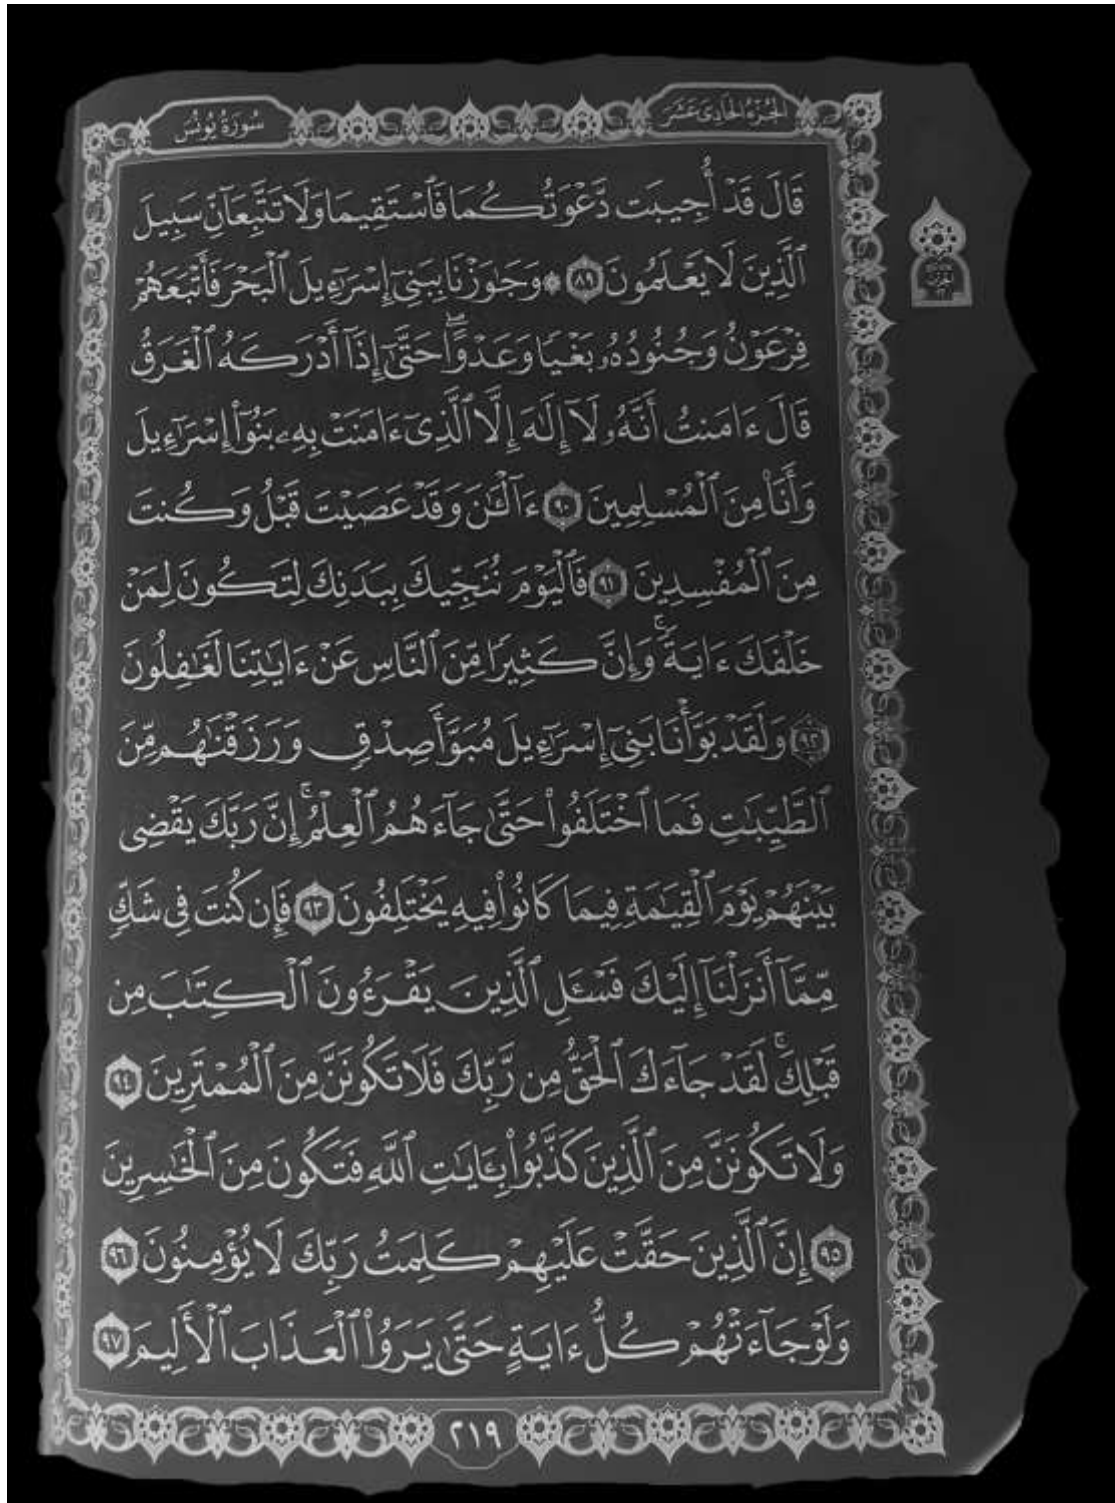 الجُزْءُ الحَادِى عَشَرَ
سُورَةُ يُونُسَ
قَالَ قَدْ أُجِيبَت دَّعْوَتُكُمَا فَٱسْتَقِيمَا وَلَا تَتَّبِعَآنِّ سَبِيلَ
ٱلَّذِينَ لَا يَعْلَمُونَ ٨٩ ۞ وَجَٰوَزْنَا بِبَنِىٓ إِسْرَٰٓءِيلَ ٱلْبَحْرَ فَأَتْبَعَهُمْ
فِرْعَوْنُ وَجُنُودُهُۥ بَغْيًا وَعَدْوًاۖ حَتَّىٰٓ إِذَآ أَدْرَكَهُ ٱلْغَرَقُ
قَالَ ءَامَنتُ أَنَّهُۥ لَآ إِلَٰهَ إِلَّا ٱلَّذِىٓ ءَامَنَتْ بِهِۦ بَنُوٓا۟ إِسْرَٰٓءِيلَ
وَأَنَا۠ مِنَ ٱلْمُسْلِمِينَ ٩٠ ءَآلْـَٰٔنَ وَقَدْ عَصَيْتَ قَبْلُ وَكُنتَ
مِنَ ٱلْمُفْسِدِينَ ٩١ فَٱلْيَوْمَ نُنَجِّيكَ بِبَدَنِكَ لِتَكُونَ لِمَنْ
خَلْفَكَ ءَايَةًۚ وَإِنَّ كَثِيرًا مِّنَ ٱلنَّاسِ عَنْ ءَايَٰتِنَا لَغَٰفِلُونَ
٩٢ وَلَقَدْ بَوَّأْنَا بَنِىٓ إِسْرَٰٓءِيلَ مُبَوَّأَ صِدْقٍ وَرَزَقْنَٰهُم مِّنَ
ٱلطَّيِّبَٰتِ فَمَا ٱخْتَلَفُوا۟ حَتَّىٰ جَآءَهُمُ ٱلْعِلْمُۚ إِنَّ رَبَّكَ يَقْضِى
بَيْنَهُمْ يَوْمَ ٱلْقِيَٰمَةِ فِيمَا كَانُوا۟ فِيهِ يَخْتَلِفُونَ ٩٣ فَإِن كُنتَ فِى شَكٍّ
مِّمَّآ أَنزَلْنَآ إِلَيْكَ فَسْـَٔلِ ٱلَّذِينَ يَقْرَءُونَ ٱلْكِتَٰبَ مِن
قَبْلِكَۚ لَقَدْ جَآءَكَ ٱلْحَقُّ مِن رَّبِّكَ فَلَا تَكُونَنَّ مِنَ ٱلْمُمْتَرِينَ ٩٤
وَلَا تَكُونَنَّ مِنَ ٱلَّذِينَ كَذَّبُوا۟ بِـَٔايَٰتِ ٱللَّهِ فَتَكُونَ مِنَ ٱلْخَٰسِرِينَ
٩٥ إِنَّ ٱلَّذِينَ حَقَّتْ عَلَيْهِمْ كَلِمَتُ رَبِّكَ لَا يُؤْمِنُونَ ٩٦
وَلَوْ جَآءَتْهُمْ كُلُّ ءَايَةٍ حَتَّىٰ يَرَوُا۟ ٱلْعَذَابَ ٱلْأَلِيمَ ٩٧
٢١٩